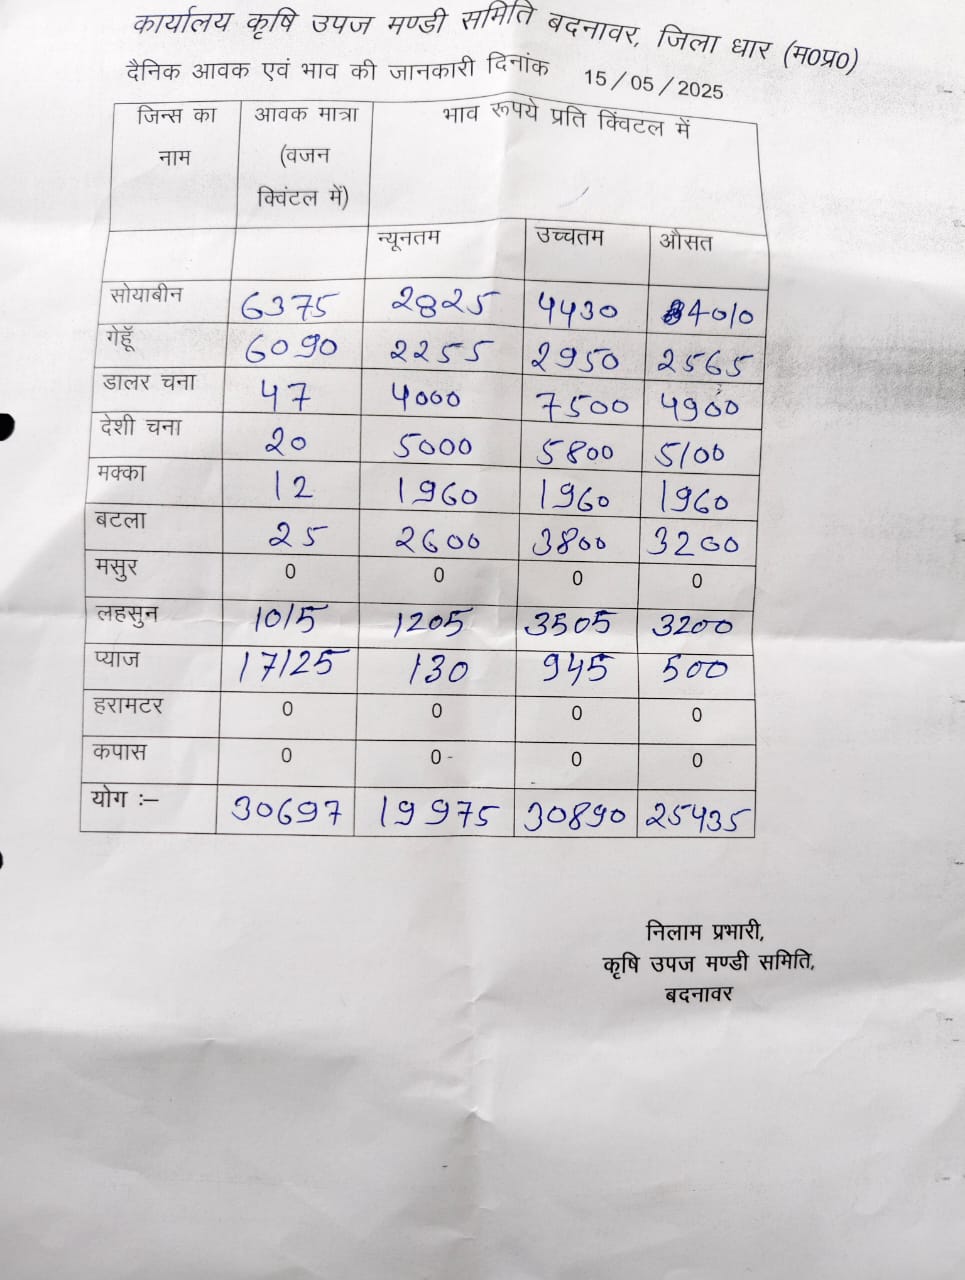 कार्यालय कृषि उपज मण्डी समिति बदनावर, जिला धार (म0प्र0)
दैनिक आवक एवं भाव की जानकारी दिनांक 15/05/2025
जिन्स का नाम आवक मात्रा (वजन क्विंटल में) भाव रूपये प्रति क्विंटल में
न्यूनतम उच्चतम औसत
सोयाबीन 6375 2825 4430 4010
गेहूँ 6090 2255 2950 2565
डालर चना 47 4000 7500 4900
देशी चना 20 5000 5800 5100
मक्का 12 1960 1960 1960
बटला 25 2600 3800 3200
मसुर 0 0 0 0
लहसुन 1015 1205 3505 3200
प्याज 17125 130 945 500
हरामटर 0 0 0 0
कपास 0 0- 0 0
योग :– 30697 19975 30890 25435
निलाम प्रभारी,
कृषि उपज मण्डी समिति,
बदनावर